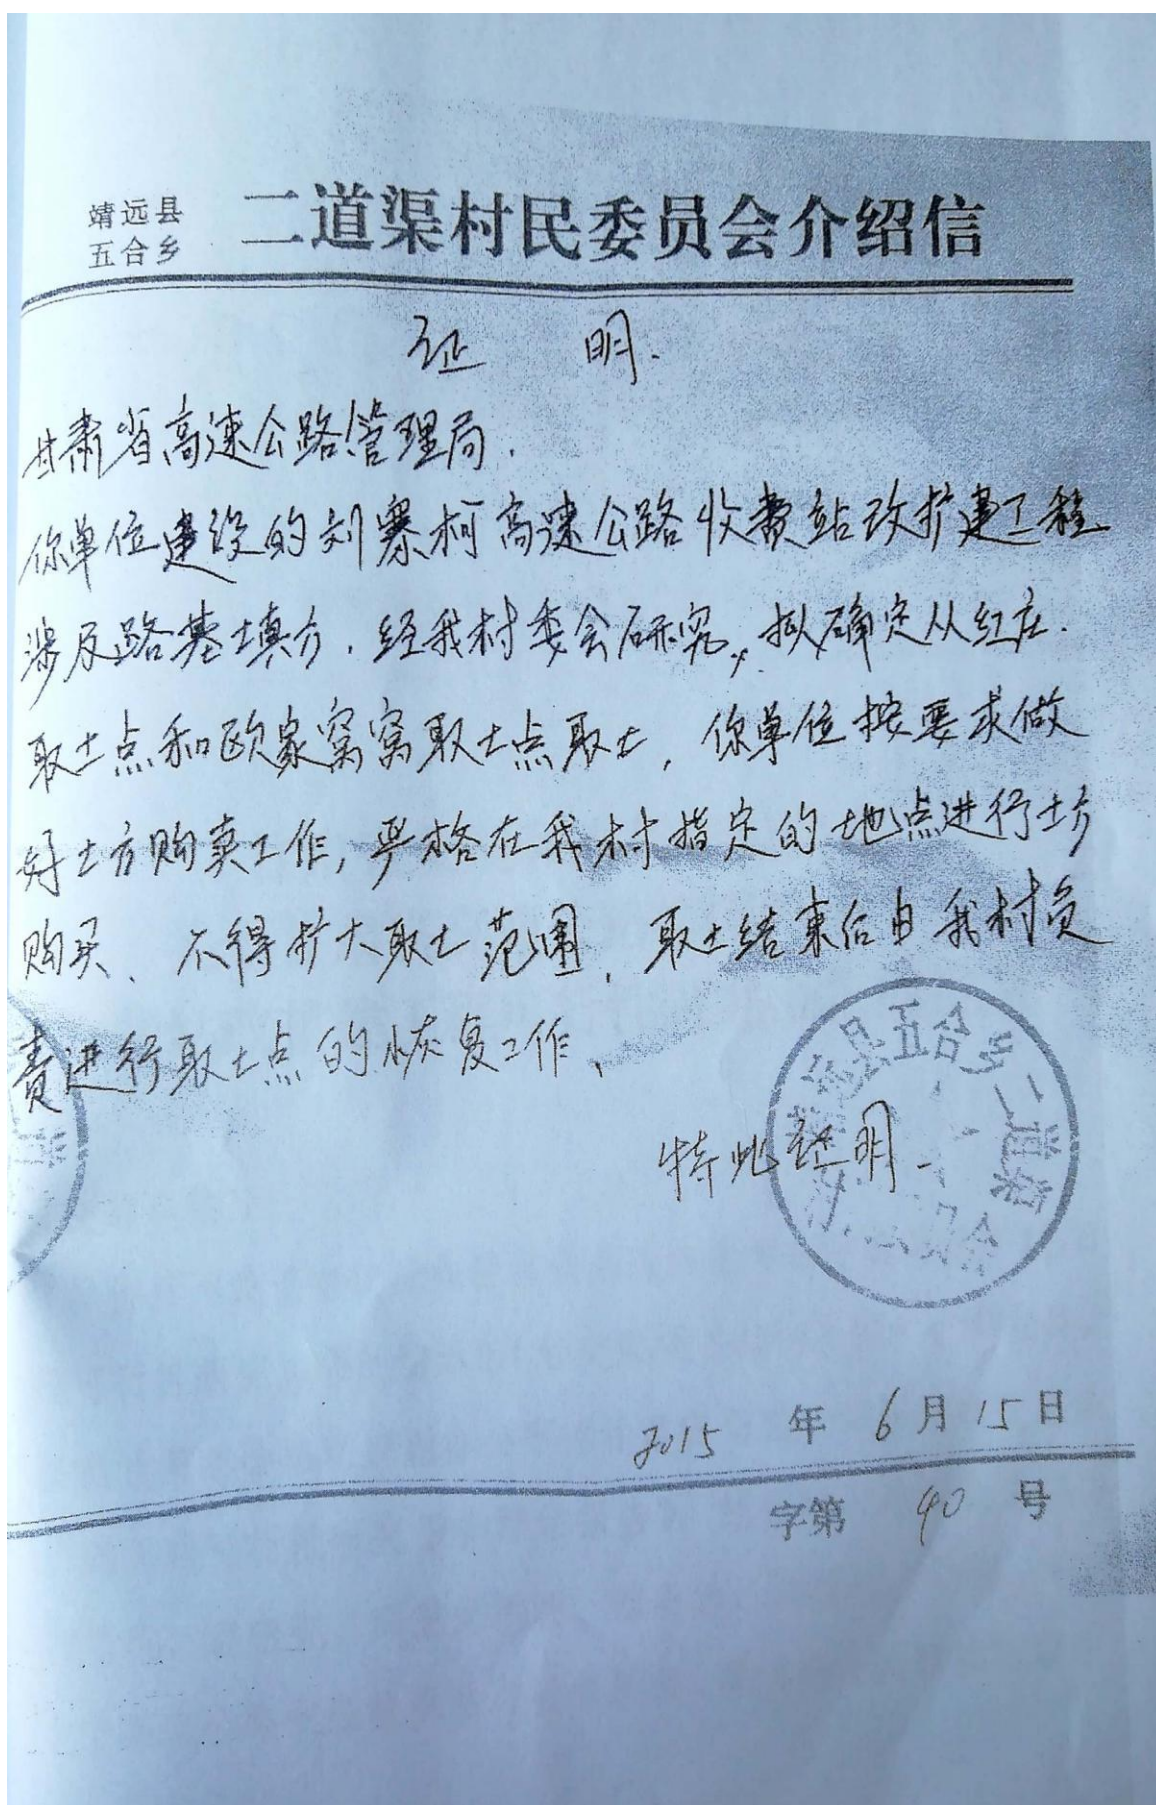 靖远县
五合乡
二道渠村民委员会介绍信
证 明.
甘肃省高速公路管理局.
你单位建设的刘寨柯高速公路收费站改扩建工程
涉及路基填方.经我村委会研究,拟确定从红庄.
取土点和欧家窝窝取土点取土,你单位按要求做
好土方购卖工作,严格在我村指定的地点进行土方
购买、不得扩大取土范围,取土结束后由我村负
责进行取土点的恢复工作、
特此证明
靖远县五合乡二道渠
村 员会
2015 年 6月15日
字第 40 号